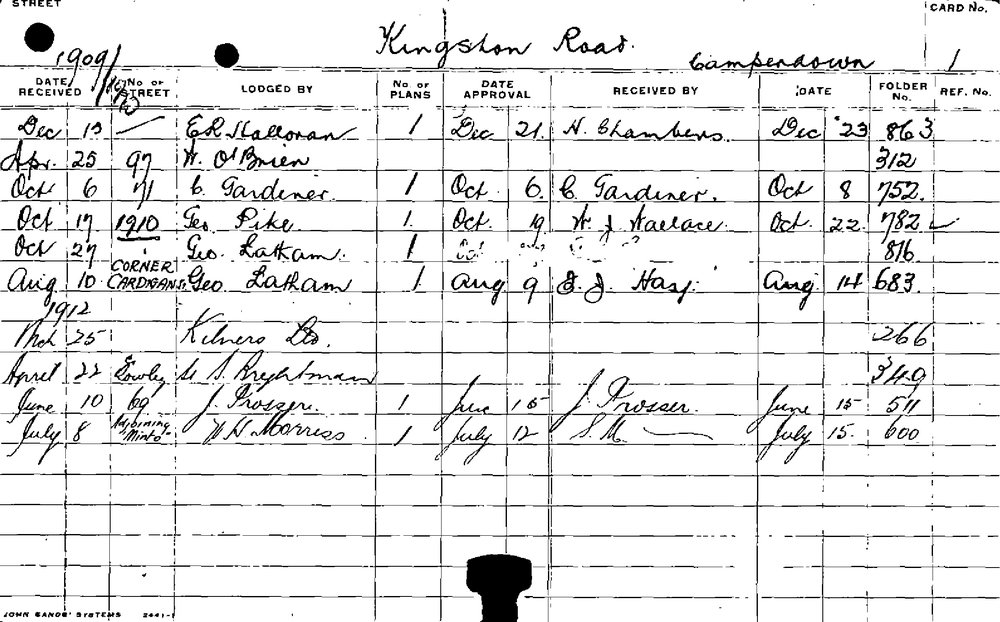 STREET
CARD No.
Kingston Road.
Camperdown 1
1909/
DATE RECEIVED No. OF STREET LODGED BY No. OF PLANS DATE APPROVAL RECEIVED BY DATE FOLDER No. REF. No.
Dec 13 — E R Halloran 1 Dec 21. H. Chambers. Dec 23 863
Apr. 25 97 W. O'Brien 312
Oct 6 71 C. Gardiner. 1 Oct 6. C. Gardiner. Oct 8 752.
Oct 17 1910 Geo Pike. 1. Oct. 19 W. J Wallace. Oct. 22. 782 ✓
Oct 27 Geo. Latham. 1 816
Aug 10 CORNER CARDIGAN St Geo. Latham 1 Aug 9 J. Hasy. Aug 14 683.
1912
Mch 25 Kilners Ltd. 266
April 22 S. Brightman 349
June 10 69 J. Prosser. 1 June 15 J. Prosser. June 15 511
July 8 Adjoining "Minto" W H Morriss 1 July 12 S. M July 15. 600
JOHN SANDS' SYSTEMS 2441-1